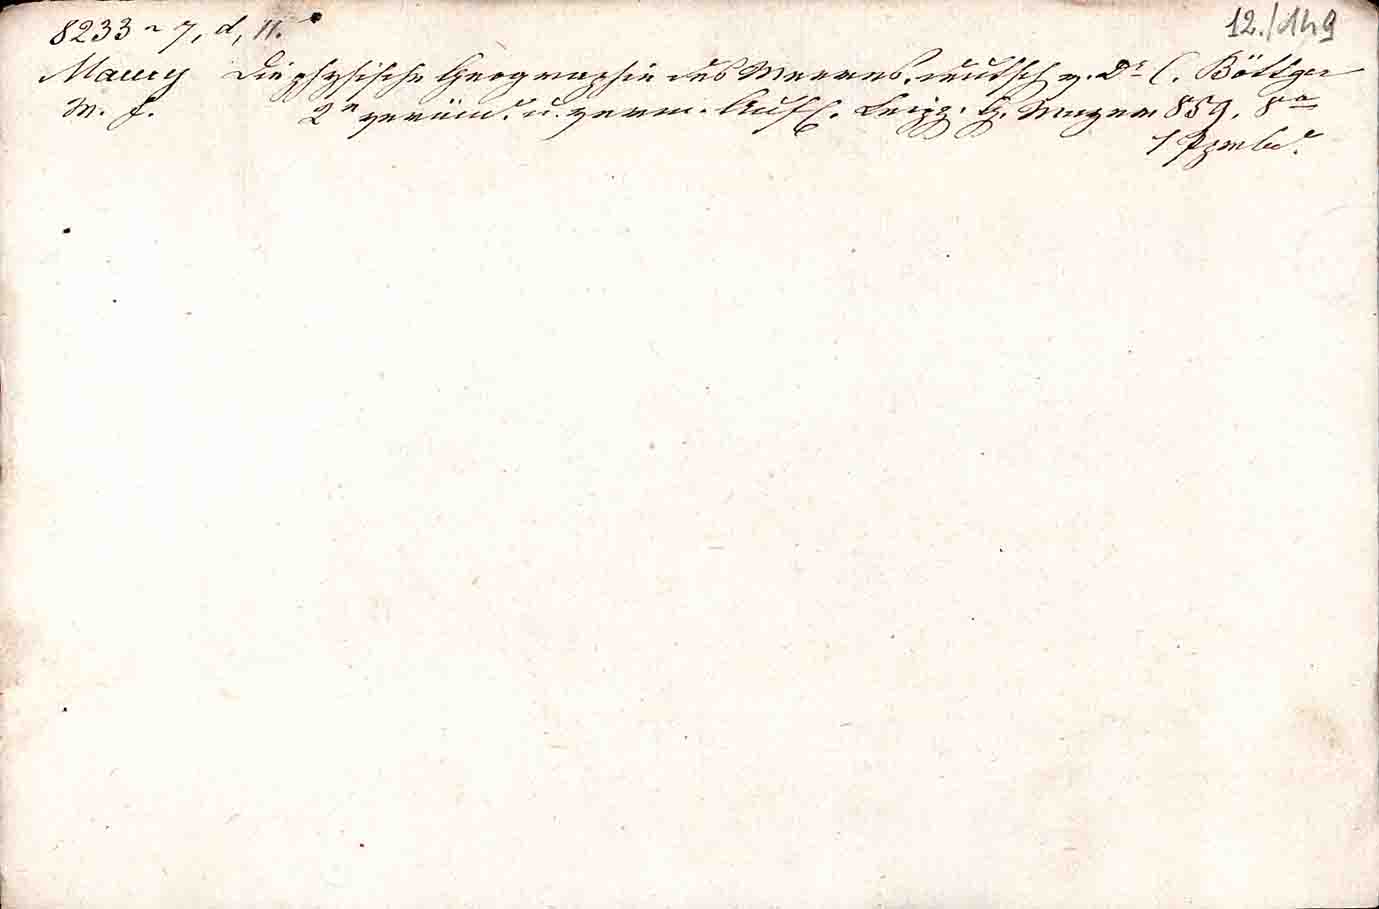 8233 ~ 7, d, 11. 12./149
Maury Die physische Geographie des Meeres. deutsch v. Dr C. Böttger
M. F. 2e veränd. u. verm. Aufl. Leipz. G. Mayer 859. 8o
1 Pzmbd.